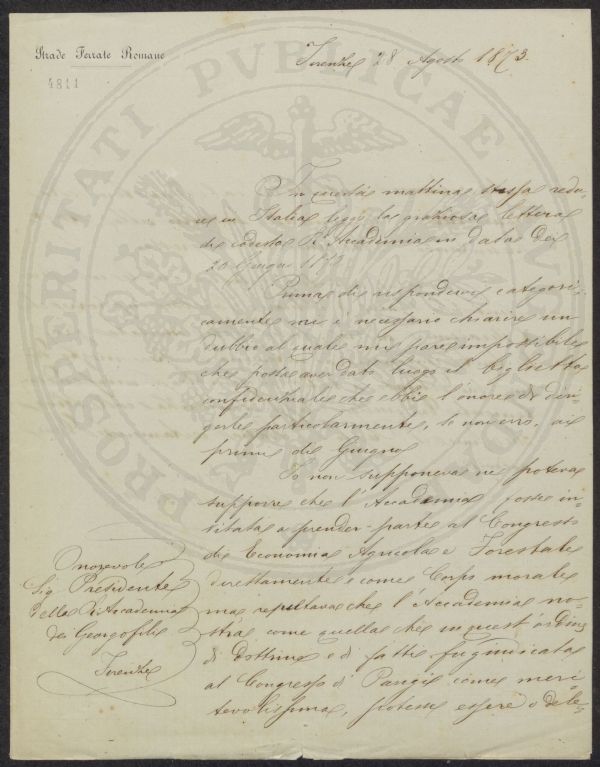 Strade Ferrate Romane
4811
Firenze 28 Agosto 1873.
In questa mattina stessa redu-
ce in Italia leggo la pregiata lettera
di codesta R. Accademia in data dei
20 Giugno 1873
Prima di rispondere categori-
camente mi è necessario chiarire un
dubbio al quale mi pare impossibile
che possa aver dato luogo il biglietto
confidenziale che ebbi l'onore di diri-
gerle particolarmente, se non erro, ai
primi di Giugno
Io non supponeva ne poteva
supporre che l'Accademia fosse in-
vitata a prender parte al Congresso
di Economia Agricola e Forestale
direttamente e come Corpo morale
ma reputava che l'Accademia no-
stra come quella che in quest'ordine
di dottrine e di fatti
al Congresso di Parigi come meri-
tevolissima, potesse essere o dele-
Onorevole
Sig. Presidente
della R. Accademia
dei Georgofili
Firenze
PROSPERITATI PUBLICAE